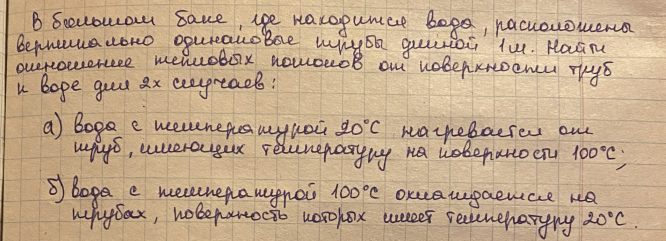 В большом баке, где находится вода, расположены
вертикально одинаковые трубы длиной 1м. Найти
отношение тепловых потоков от поверхности труб
к воде для 2х случаев:
а) вода с температурой 20°C нагревается от
труб, имеющих температуру на поверхности 100°C;
б) вода с температурой 100°C охлаждается на
трубах, поверхность которых имеет температуру 20°C.